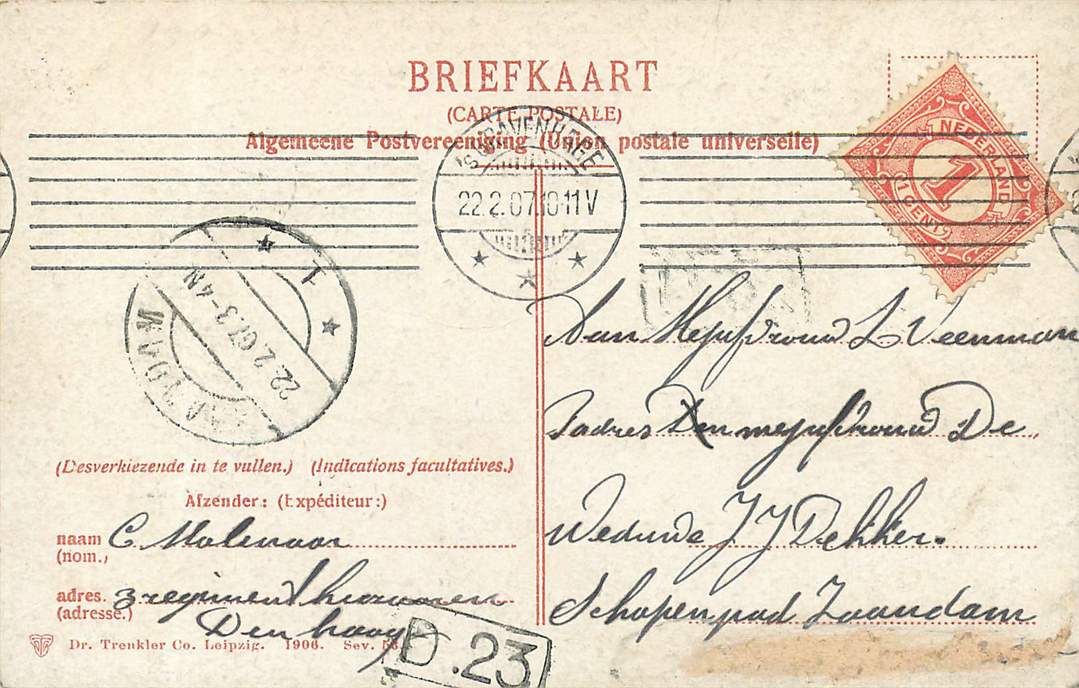 BRIEFKAART
(CARTE POSTALE)
Algemeene Postvereeniging (Union postale universelle)
'S GRAVENHAGE
22.2.07.10-11V
NEDERLAND
1
1 CENT
ZAANDAM
22.2.07.3-4N
1
Aan Mejufvrouw L Veenman
Padres mejufvrouw De
Weduwe J J Dekker.
Schapenpad Zaandam
(Desverkiezende in te vullen.) (Indications facultatives.)
Afzender: (Expéditeur:)
naam C Molenaar
(nom.)
adres. 3 regiment huzaren
(adresse.)
Den haag
Dr. Trenkler Co. Leipzig. 1906. Sev.
D.23